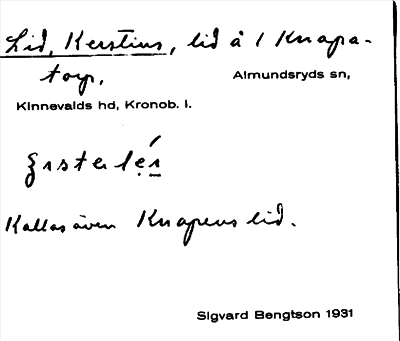 Lid, Kerstins, lid å / Knapa-
torp. Almundsryds sn,
Kinnevalds hd, Kronob. l.
Kallas även Knapens lid.
Sigvard Bengtson 1931